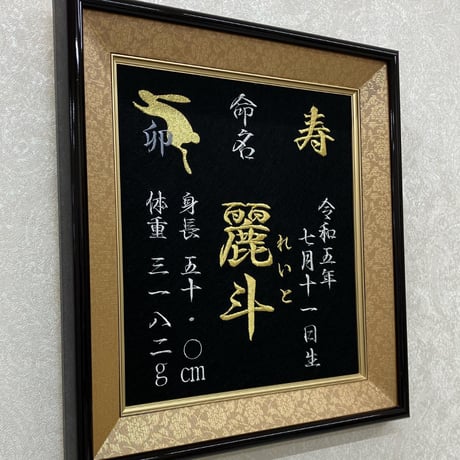 寿
令和五年
七月十一日生
命名
麗斗
れいと
卯
身長 五十・〇cm
体重 三一八二g